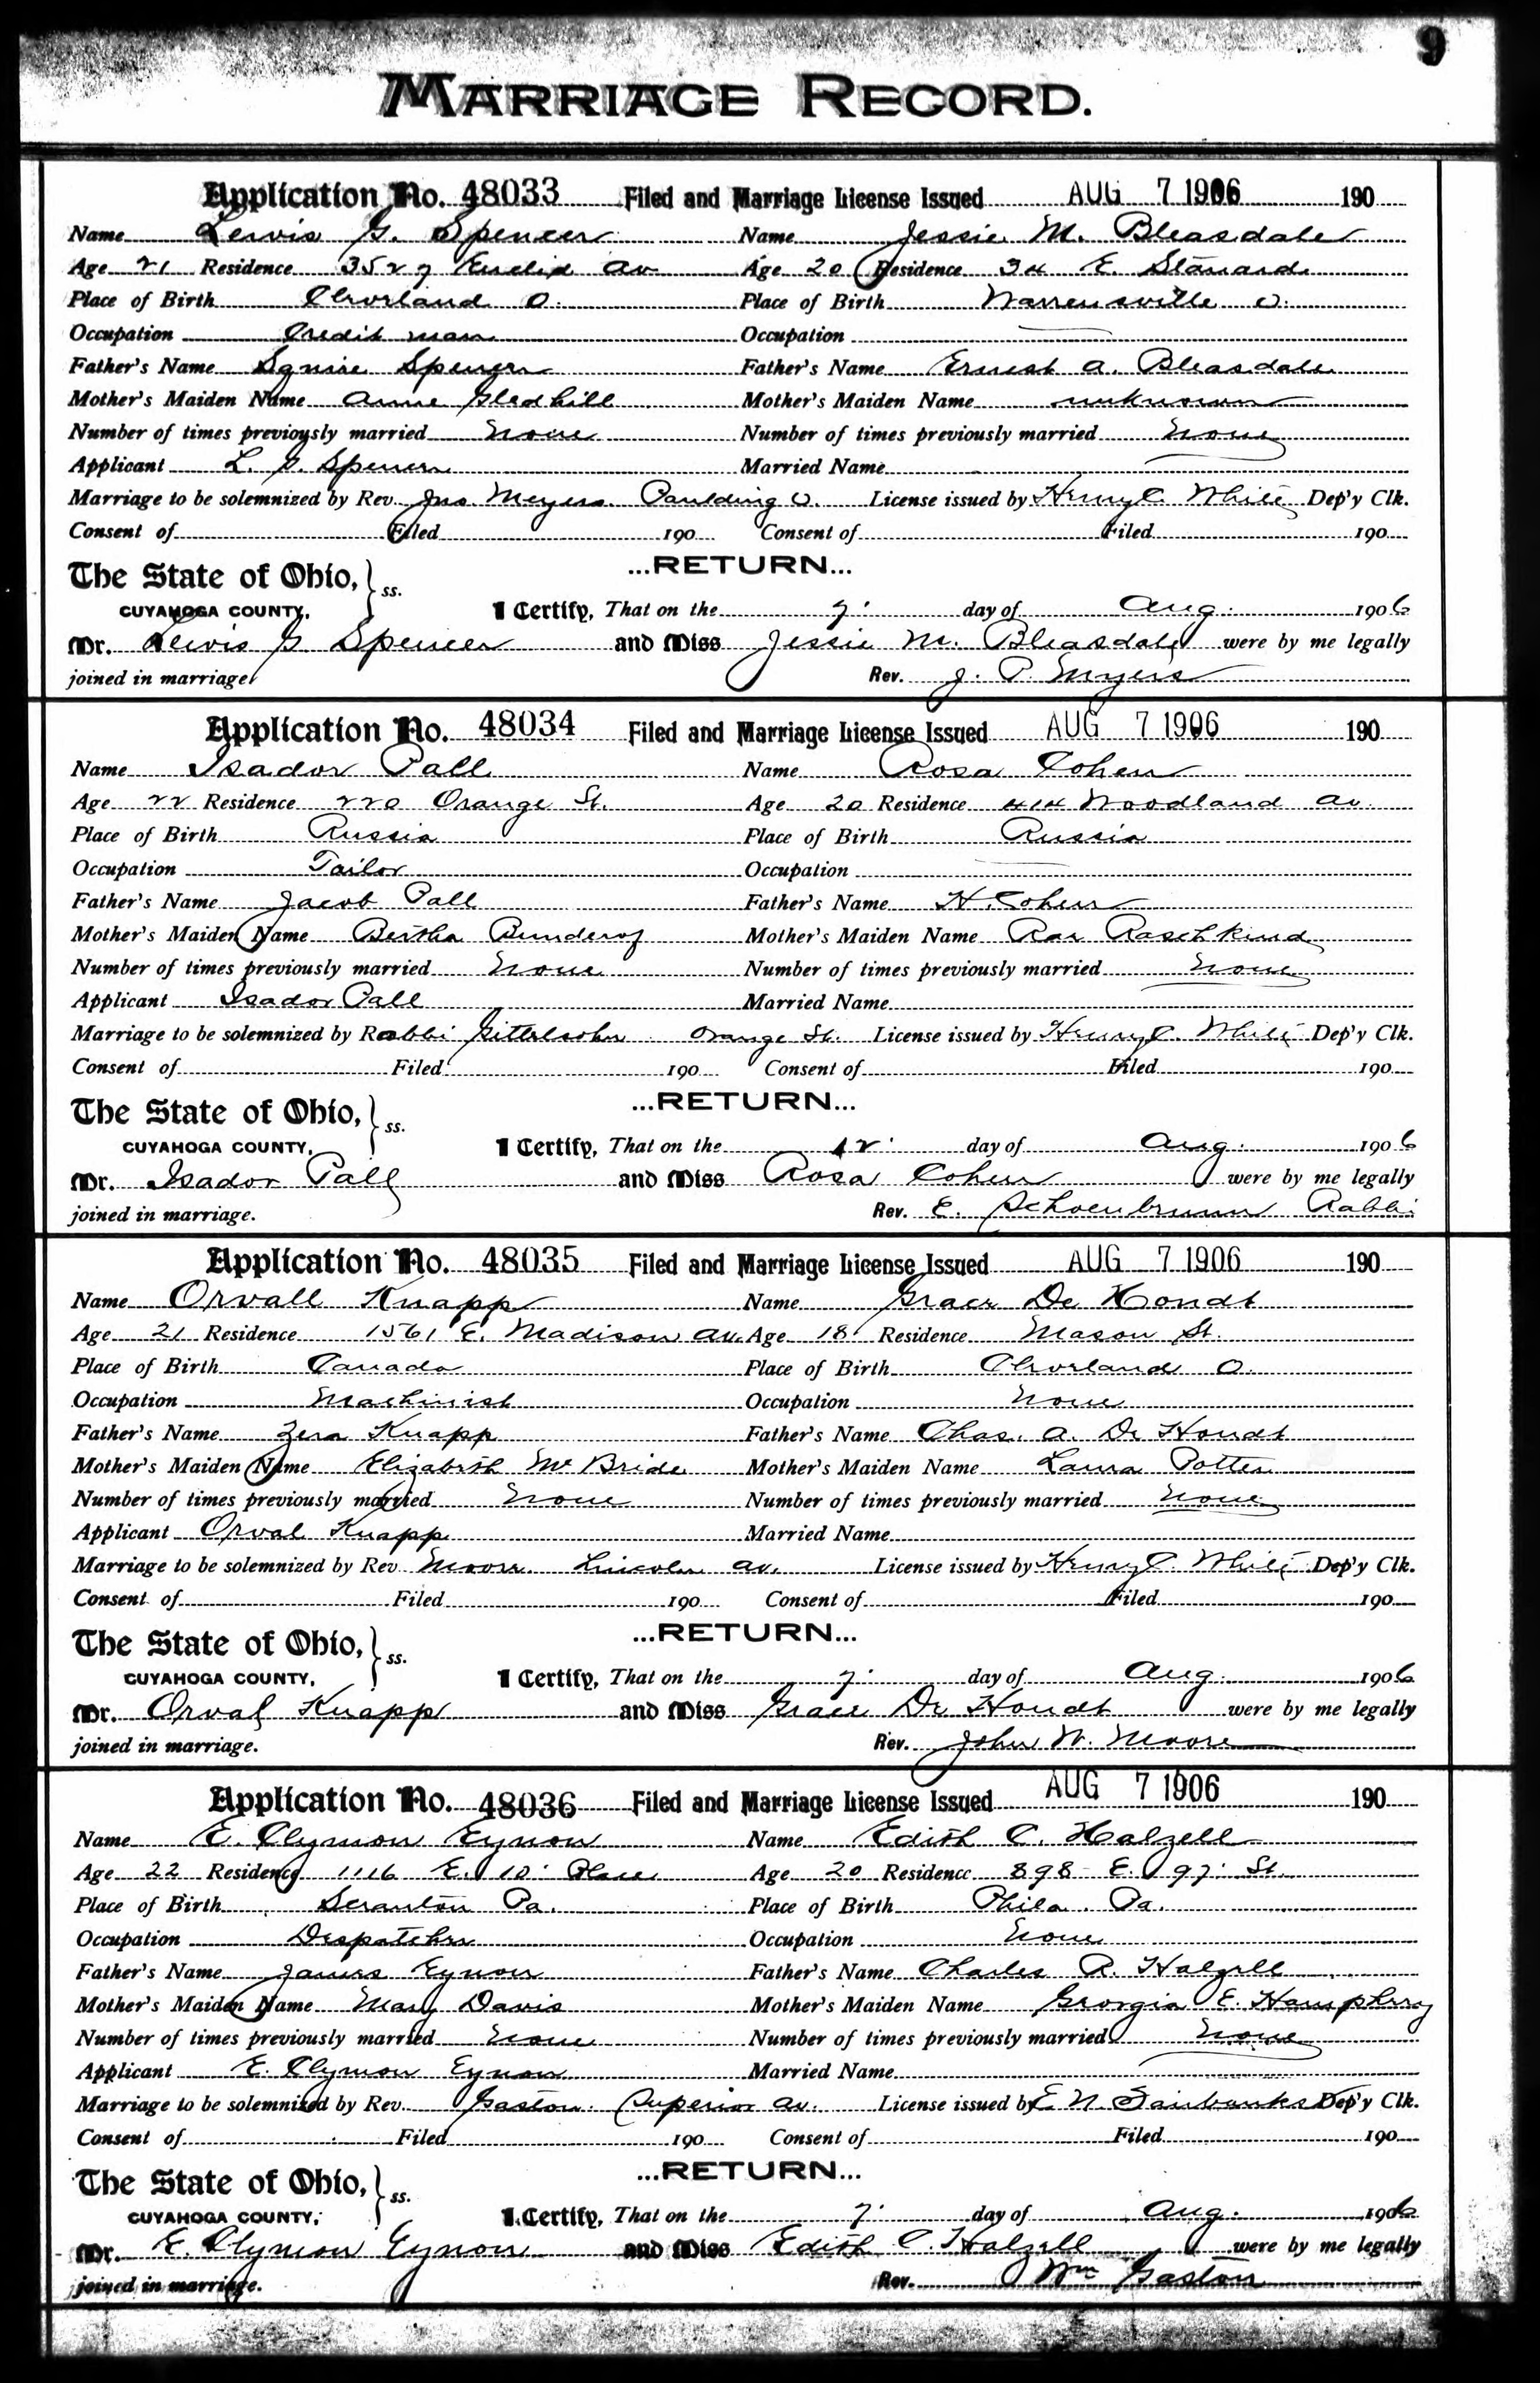 9
MARRIAGE RECORD.
Application No. 48033 Filed and Marriage License Issued AUG 7 1906 190
Name Lewis G. Spencer Name Jessie M. Bleasdale
Age 21 Residence 3527 Euclid av Age 20 Residence 34 E. Stanard
Place of Birth Cleveland O. Place of Birth Warrensville O.
Occupation Credit man Occupation
Father's Name Squire Spencer Father's Name Ernest A. Bleasdale
Mother's Maiden Name Anne Gledhill Mother's Maiden Name unknown
Number of times previously married None Number of times previously married None
Applicant L. G. Spencer Married Name
Marriage to be solemnized by Rev. Jno. Meyers. Paulding O. License issued by Henry C. White Dep'y Clk.
Consent of Filed 190 Consent of Filed 190
The State of Ohio, ss. ...RETURN...
CUYAHOGA COUNTY, I Certify, That on the 7. day of Aug. 1906
Mr. Lewis G Spencer and Miss Jessie M. Bleasdale were by me legally
joined in marriage. Rev. J. P. Myers
Application No. 48034 Filed and Marriage License Issued AUG 7 1906 190
Name Isador Pall Name Rosa Cohen
Age 22 Residence 220 Orange St. Age 20 Residence 414 Woodland av.
Place of Birth Russia Place of Birth Russia
Occupation Tailor Occupation
Father's Name Jacob Pall Father's Name H. Cohen
Mother's Maiden Name Bertha Mother's Maiden Name Raschkind
Number of times previously married None Number of times previously married None
Applicant Isador Pall Married Name
Marriage to be solemnized by Rabbi Gittelsohn Orange St. License issued by Henry C. White Dep'y Clk.
Consent of Filed 190 Consent of Filed 190
The State of Ohio, ss. ...RETURN...
CUYAHOGA COUNTY, I Certify, That on the 12. day of Aug. 1906
Mr. Isador Pall and Miss Rosa Cohen were by me legally
joined in marriage. Rev. E. Schoenbrunn Rabbi
Application No. 48035 Filed and Marriage License Issued AUG 7 1906 190
Name Orvall Knapp Name Grace De Hondt
Age 21 Residence 1561 E. Madison av. Age 18 Residence Mason St.
Place of Birth Canada Place of Birth Cleveland O.
Occupation Machinist Occupation None
Father's Name Zera Knapp Father's Name Chas. A. De Hondt
Mother's Maiden Name Elizabeth McBride Mother's Maiden Name Laura Potter
Number of times previously married None Number of times previously married None
Applicant Orval Knapp Married Name
Marriage to be solemnized by Rev Moore. Lincoln av. License issued by Henry C. White Dep'y Clk.
Consent of Filed 190 Consent of Filed 190
The State of Ohio, ss. ...RETURN...
CUYAHOGA COUNTY, I Certify, That on the 7. day of Aug. 1906
Mr. Orval Knapp and Miss Grace De Hondt were by me legally
joined in marriage. Rev. John W. Moore
Application No. 48036 Filed and Marriage License Issued AUG 7 1906 190
Name E. Clymon Eynon Name Edith C. Halzell
Age 22 Residence 1116 E. 10. Place Age 20 Residence 898 E. 97. St.
Place of Birth Scranton Pa. Place of Birth Phila. Pa.
Occupation Despatcher Occupation None
Father's Name James Eynon Father's Name Charles R. Halzell
Mother's Maiden Name Mary Davis Mother's Maiden Name Georgia E. Humphrey
Number of times previously married None Number of times previously married None
Applicant E. Clymon Eynon Married Name
Marriage to be solemnized by Rev. Gaston. Superior av. License issued by E. N. Fairbanks Dep'y Clk.
Consent of Filed 190 Consent of Filed 190
The State of Ohio, ss. ...RETURN...
CUYAHOGA COUNTY, I Certify, That on the 7. day of Aug. 1906
Mr. E. Clymon Eynon and Miss Edith C. Halzell were by me legally
joined in marriage. Rev. Wm Gaston